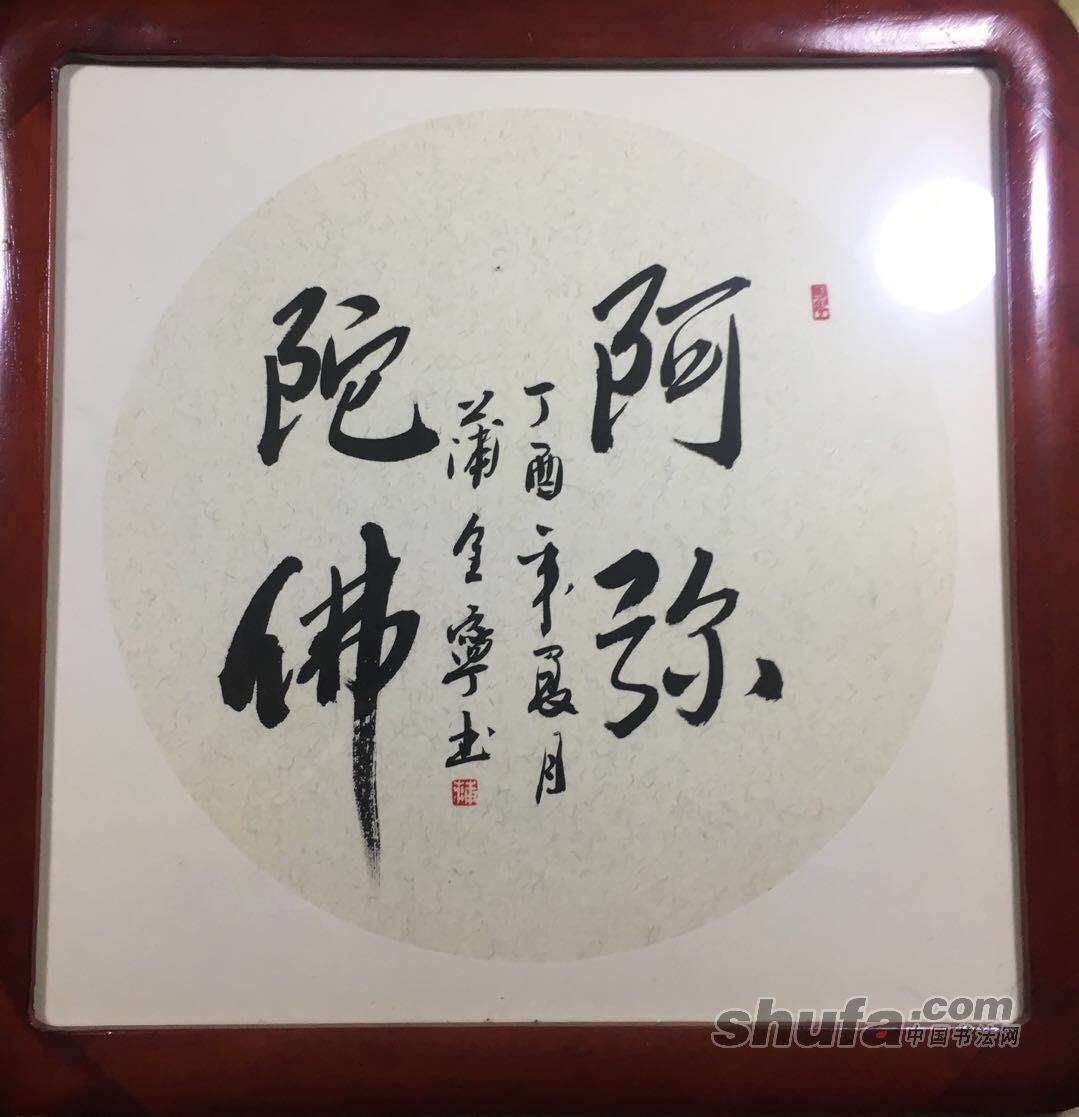 阿弥
陀佛
丁酉年夏月
蒲全寧书
shufa.com
中国书法网